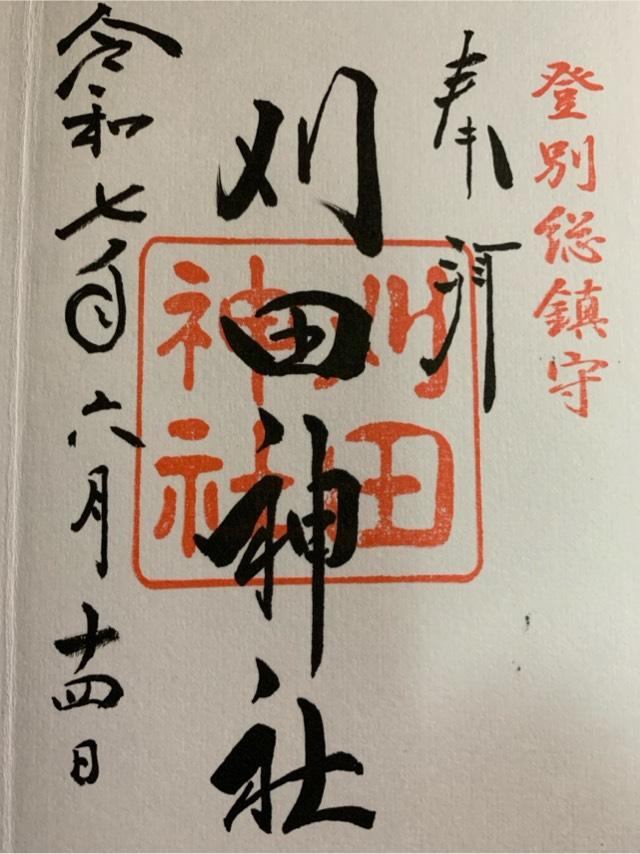 登別総鎮守
奉拝
刈田神社
刈田
神社
令和七年六月十四日